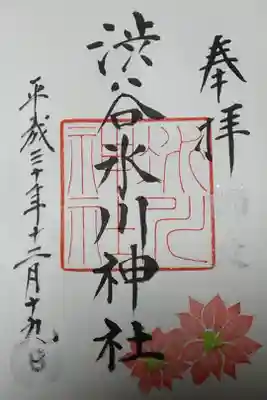 奉拝
渋谷氷川神社
平成三十年十二月十九日